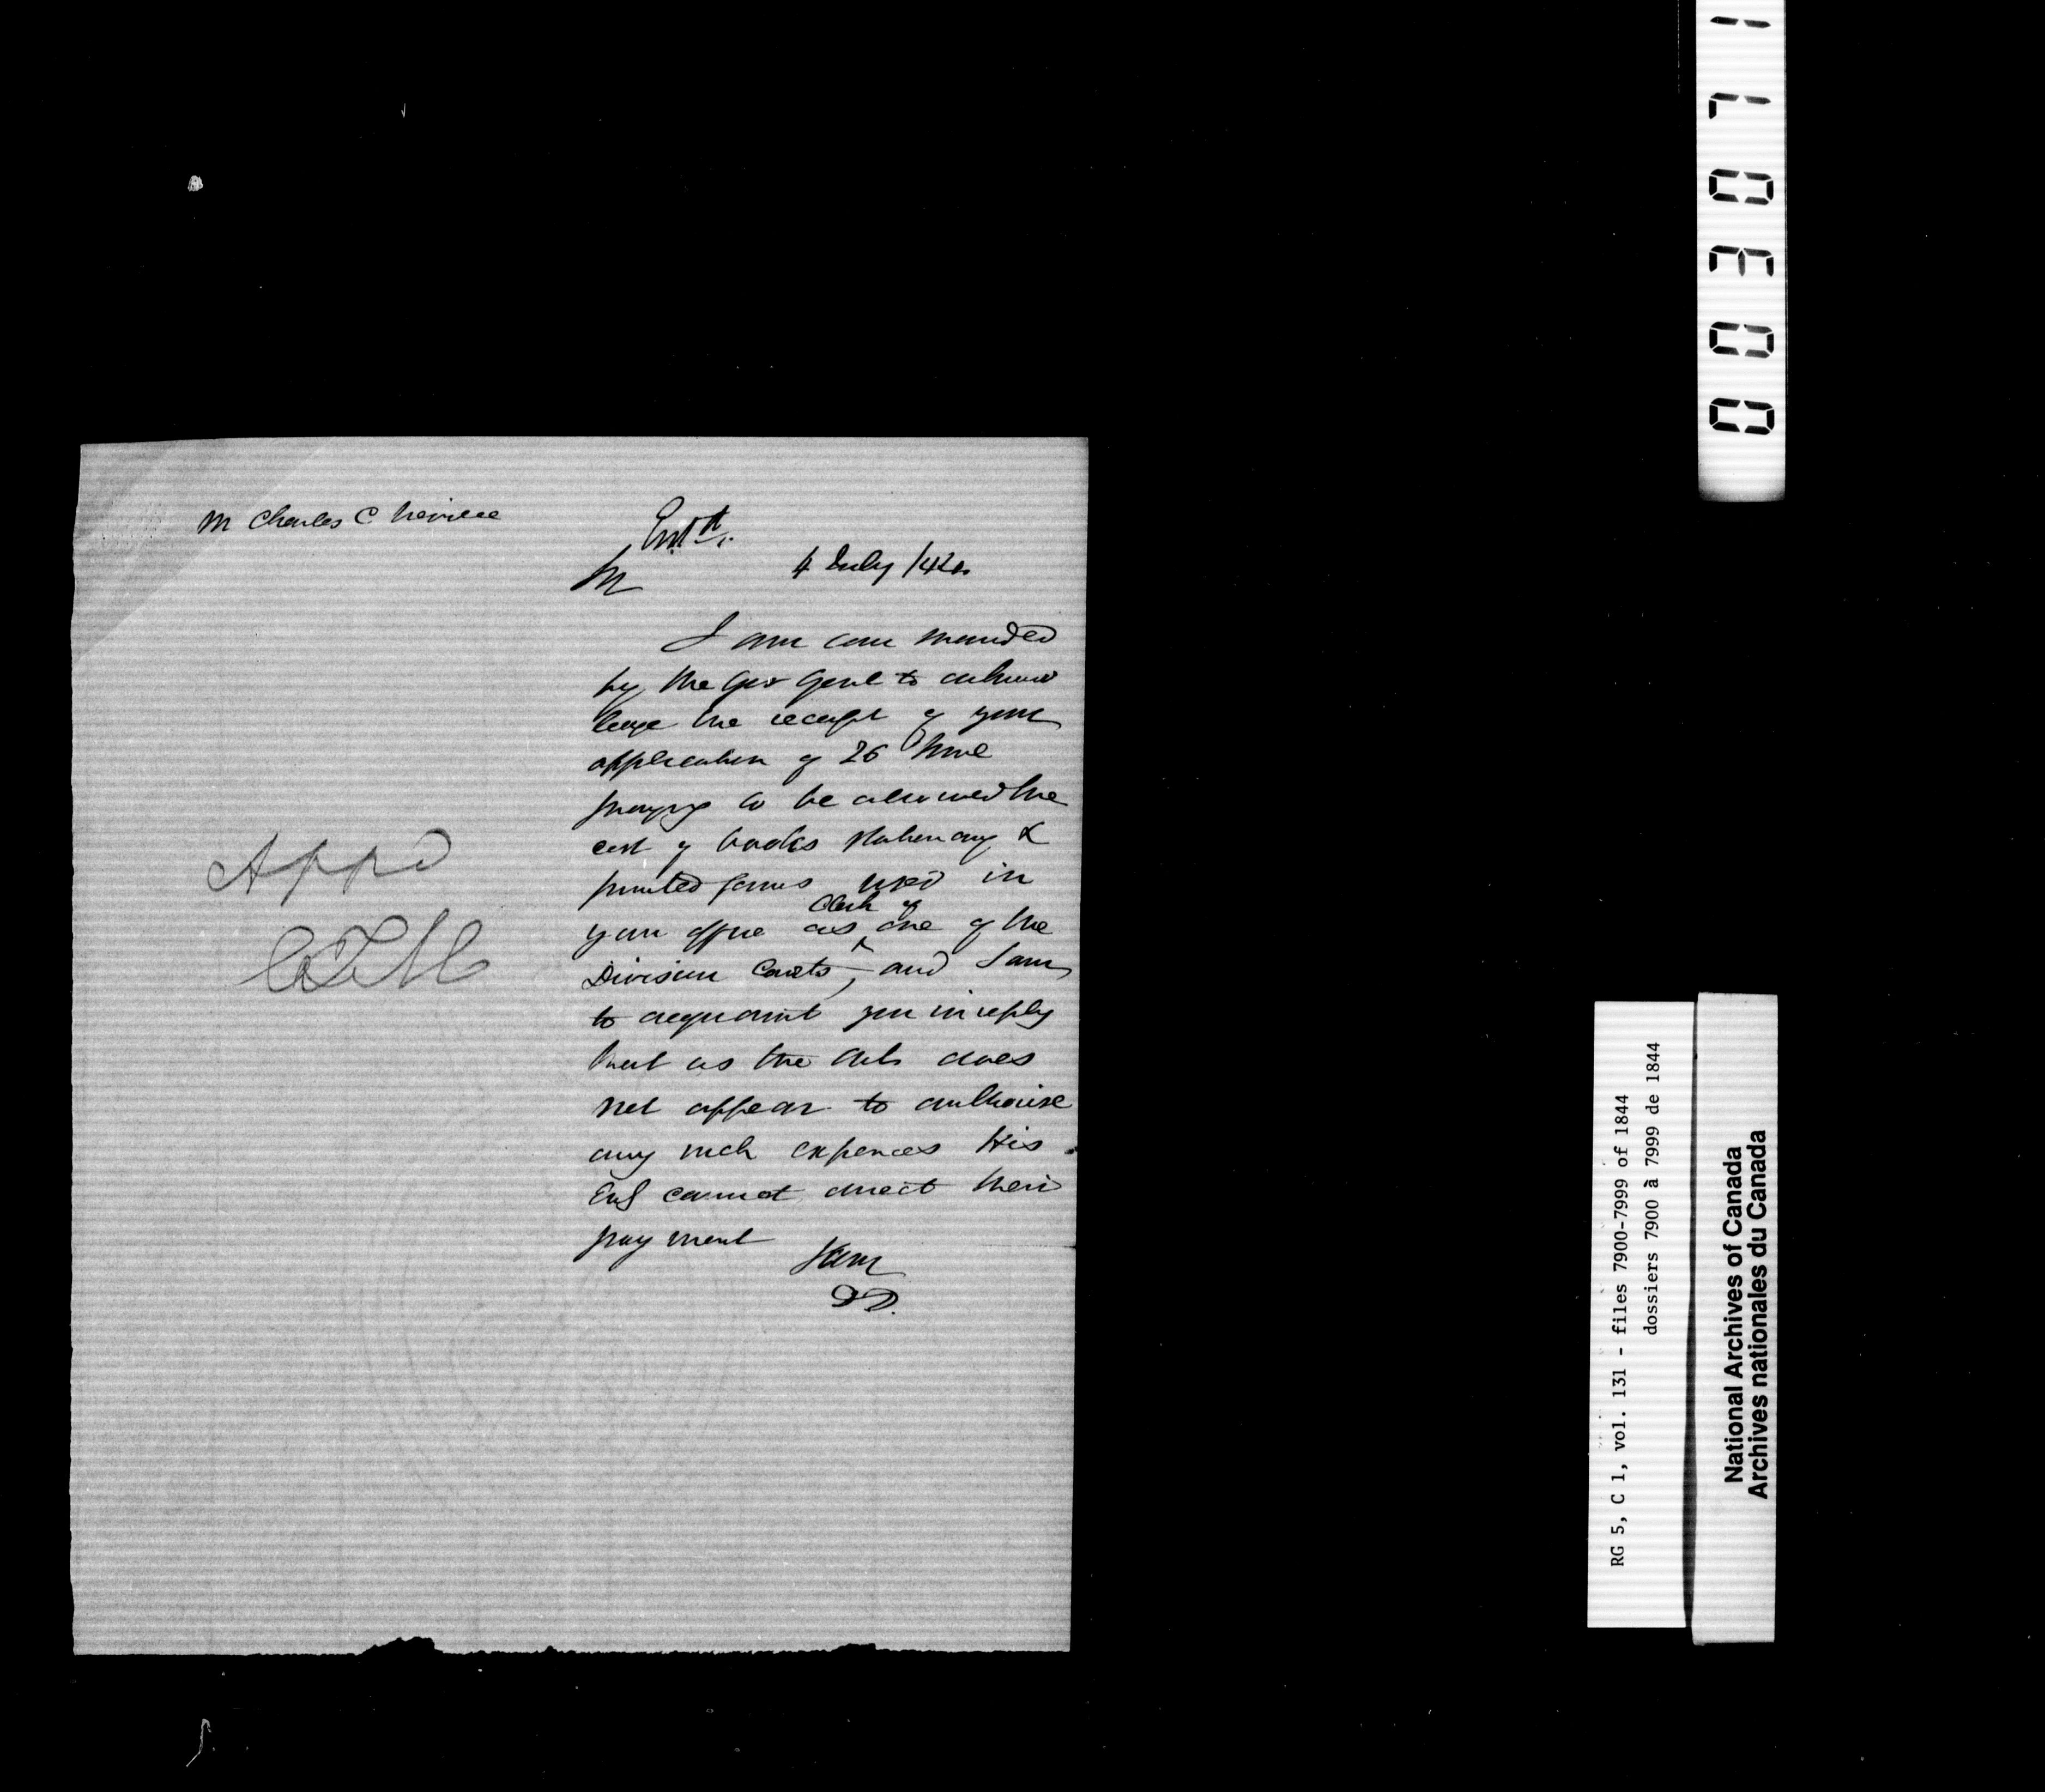 M Charles C Neville
Entd.
Sir
4 July /44.
I am com manded
by the Gov Genl to acknow
lege the receipt of your
application of 26 June
praying to be allowed the
cost of books stationary &
printed forms used in
Clerk of
your office as one of the
Division Courts, and I am
to acquaint you in reply
that as the Act does
not appear to authorise
any such expences His
Exy cannot direct their
payment
I am
DD.
Appd
CTM
00307 1
RG 5, C 1, vol. 131 - files 7900-7999 of 1844
dossiers 7900 à 7999 de 1844
National Archives of Canada
Archives nationales du Canada